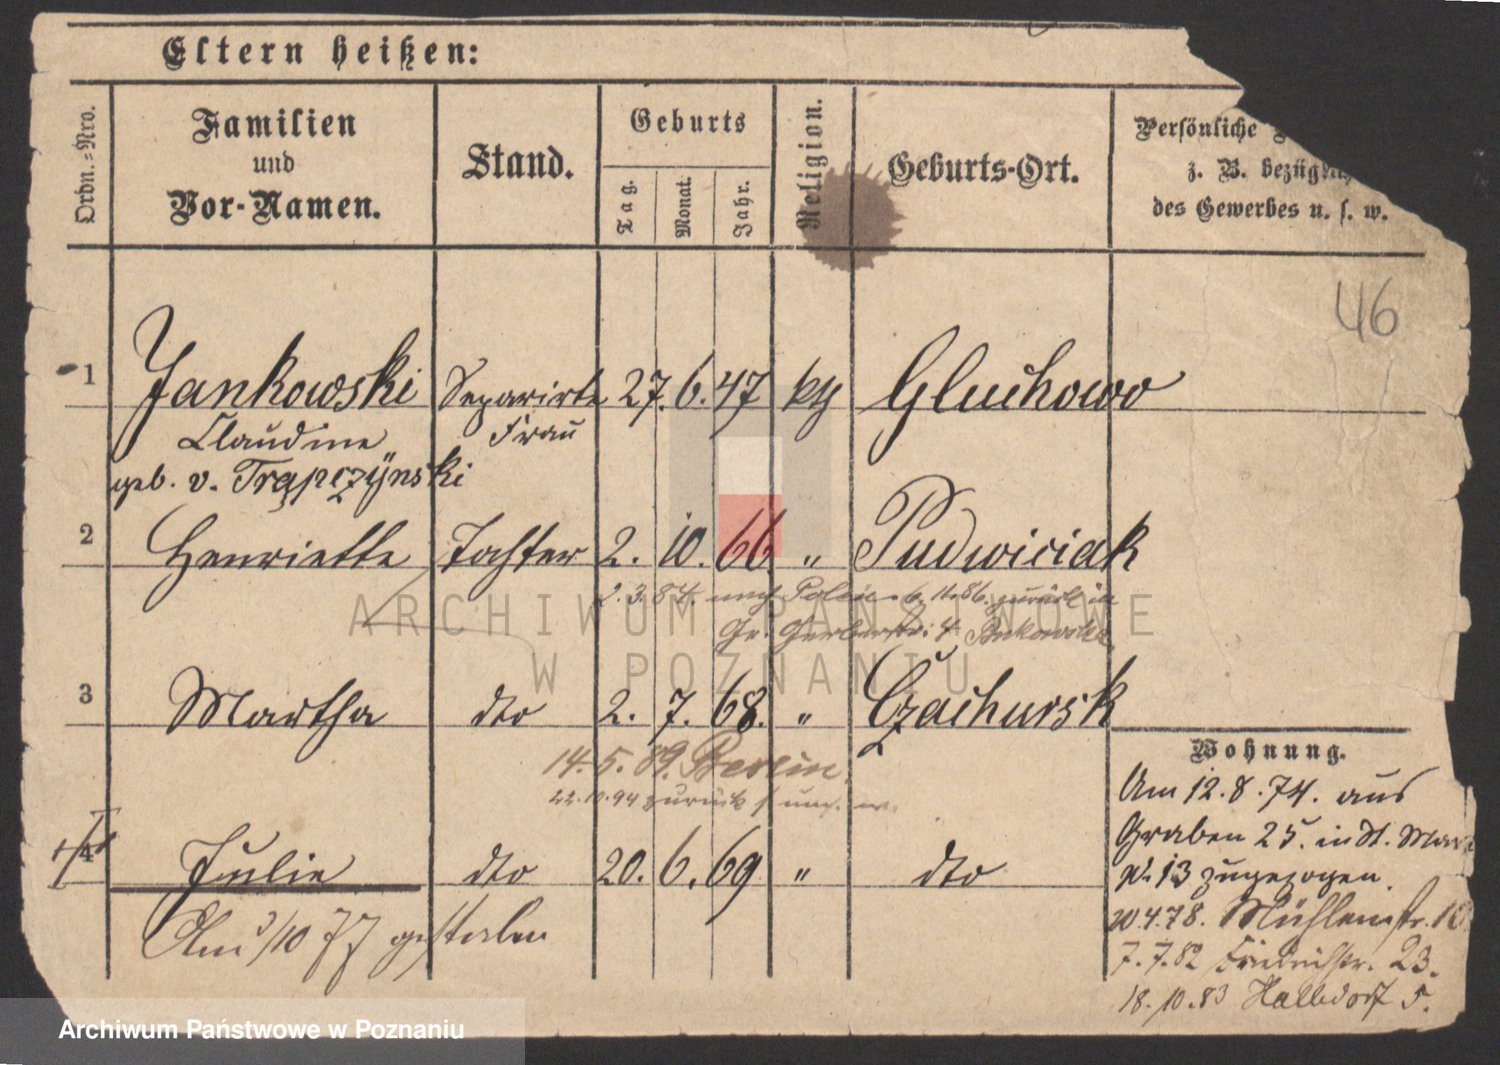 Eltern heißen:
Ordn.=Nro.
Familien
und
Vor-Namen.
Stand.
Geburts
Tag.
Monat.
Jahr.
Religion.
Geburts-Ort.
Persönliche
z. B. bezügl
des Gewerbes u. s. w.
46
1 Jankowski Separirte 27. 6. 47 kth Gluchowo
Claudine Frau
geb. v. Trąpczyński
2 Henriette Tochter 2. 10. 66 " Pudwiciak
2. 3. 84. nach Polen. 6. 11. 86. zurück in
Gr. Gerberstr. 4 Bukowska
3 Martha dto 2. 7. 68. " Czachursk
14. 5. 89. Berlin.
22. 10. 94 zurück
4 Julie dto 20. 6. 69 " dto
Am 3/10 77 gestorben
Wohnung.
Am 12. 8. 74. aus
Graben 25. in St. Mar
N. 13 zugezogen.
4. 78. Mühlenstr. 10
7. 7. 82 Friedrichstr. 23.
18. 10. 83 Halbdorf 5.
ARCHIWUM PAŃSTWOWE
W POZNANIU
Archiwum Państwowe w Poznaniu